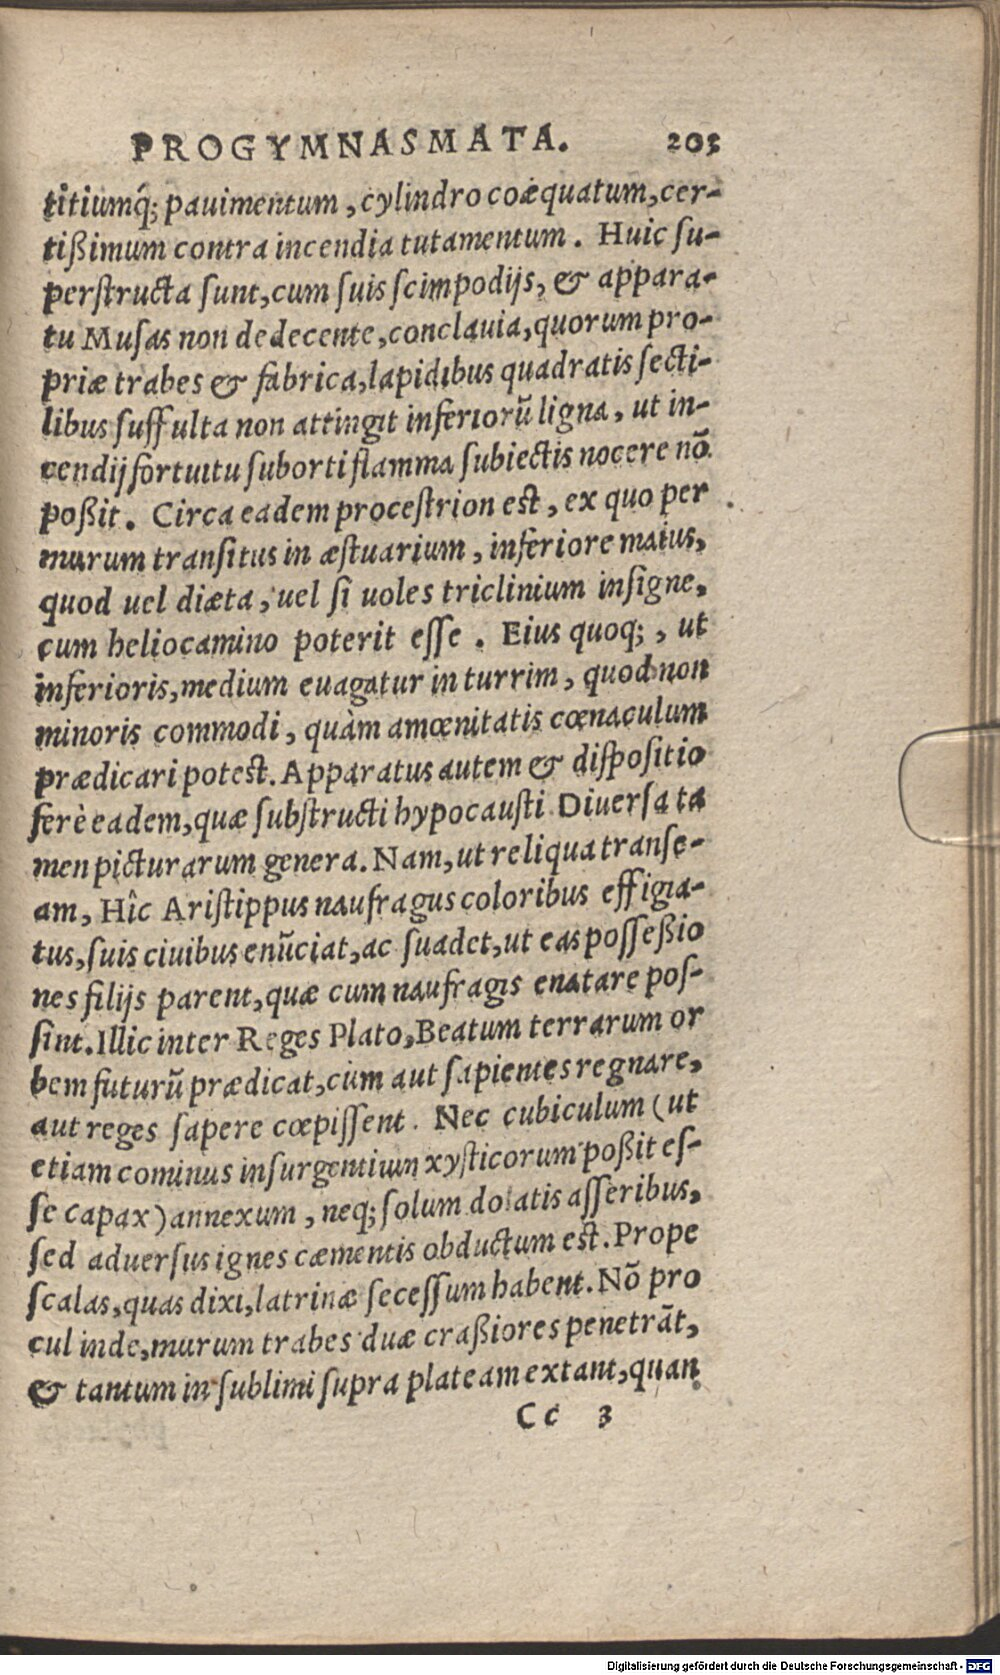 PROGYMNASMATA. 203
titiumq́; pauimentum, cylindro coæquatum, cer-
tißimum contra incendia tutamentum. Huic ſu-
perſtructa ſunt, cum ſuis ſcimpodijs, & appara-
tu Muſas non dedecente, conclauia, quorum pro-
priæ trabes & fabrica, lapidibus quadratis ſecti-
libus ſuffulta non attingit inferiorũ ligna, ut in-
cendij fortuitu ſuborti flamma ſubiectis nocere nõ
poßit. Circa eadem proceſtrion eſt, ex quo per
murum tranſitus in æſtuarium, inferiore maius,
quod uel diæta, uel ſi uoles triclinium inſigne,
cum heliocamino poterit eſſe. Eius quoq;, ut
inferioris, medium euagatur in turrim, quod non
minoris commodi, quàm amœnitatis cœnaculum
prædicari poteſt. Apparatus autem & diſpoſitio
ferè eadem, quæ ſubſtructi hypocauſti Diuerſa ta
men picturarum genera. Nam, ut reliqua tranſe-
am, Hîc Ariſtippus naufragus coloribus effigia-
tus, ſuis ciuibus enũciat, ac ſuadet, ut eas poſſeßio
nes filijs parent, quæ cum naufragis enatare poſ-
ſint. Illic inter Reges Plato, Beatum terrarum or
bem futurũ prædicat, cùm aut ſapientes regnare,
aut reges ſapere cœpiſſent. Nec cubiculum (ut
etiam cominus inſurgentium xyſticorum poßit eſ-
ſe capax) annexum, neq; ſolum dolatis aſſeribus,
ſed aduerſus ignes cæmentis obductum eſt. Prope
ſcalas, quas dixi, latrinæ ſeceſſum habent. Nõ pro
cul inde, murum trabes duæ craßiores penetrãt,
& tantum in ſublimi ſupra plateam extant, quan
Cc 3
Digitalisierung gefördert durch die Deutsche Forschungsgemeinschaft - DFG